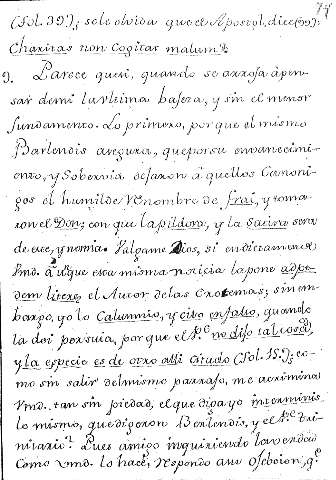 (fol. 39); se le olvida que el Apostol, dice (99):
Charitas non cogitat malum.
9. Parece que si, quando se arroja à pen-
sar de mi la ultima bajeza, y sin el menor
fundamento. Lo primero, por que el mismo
Barlendis asegura, que por su envanecimi-
ento, y Sobervia dejaron à aquellos Canoni-
gos el humilde renombre de frai, y toma-
ron el Don; con que la pildora, y la Satira sera
de ese, y no mia. Valgame Dios, si en dictamen de
Vmd. à que esta misma noticia la pone adpe-
dem literæ el Autor de las Exotemas; sin em-
bargo, yo lo Calumnio, y cito en falso, quando
la doi por suia, por que el P.e no dijo tal cosa,
y la especie es de otro alli citado (fol. 15.); co-
mo sin salir del mismo parrafo, me acrimina
Vmd. tan sin piedad, el que diga yo interminis
lo mismo, que digeron Berlendis, y el P.e Tri-
nitario? Pues amigo inquiriendo la verdad
como Vmd. lo hace, respondo a su Objecion, q.e